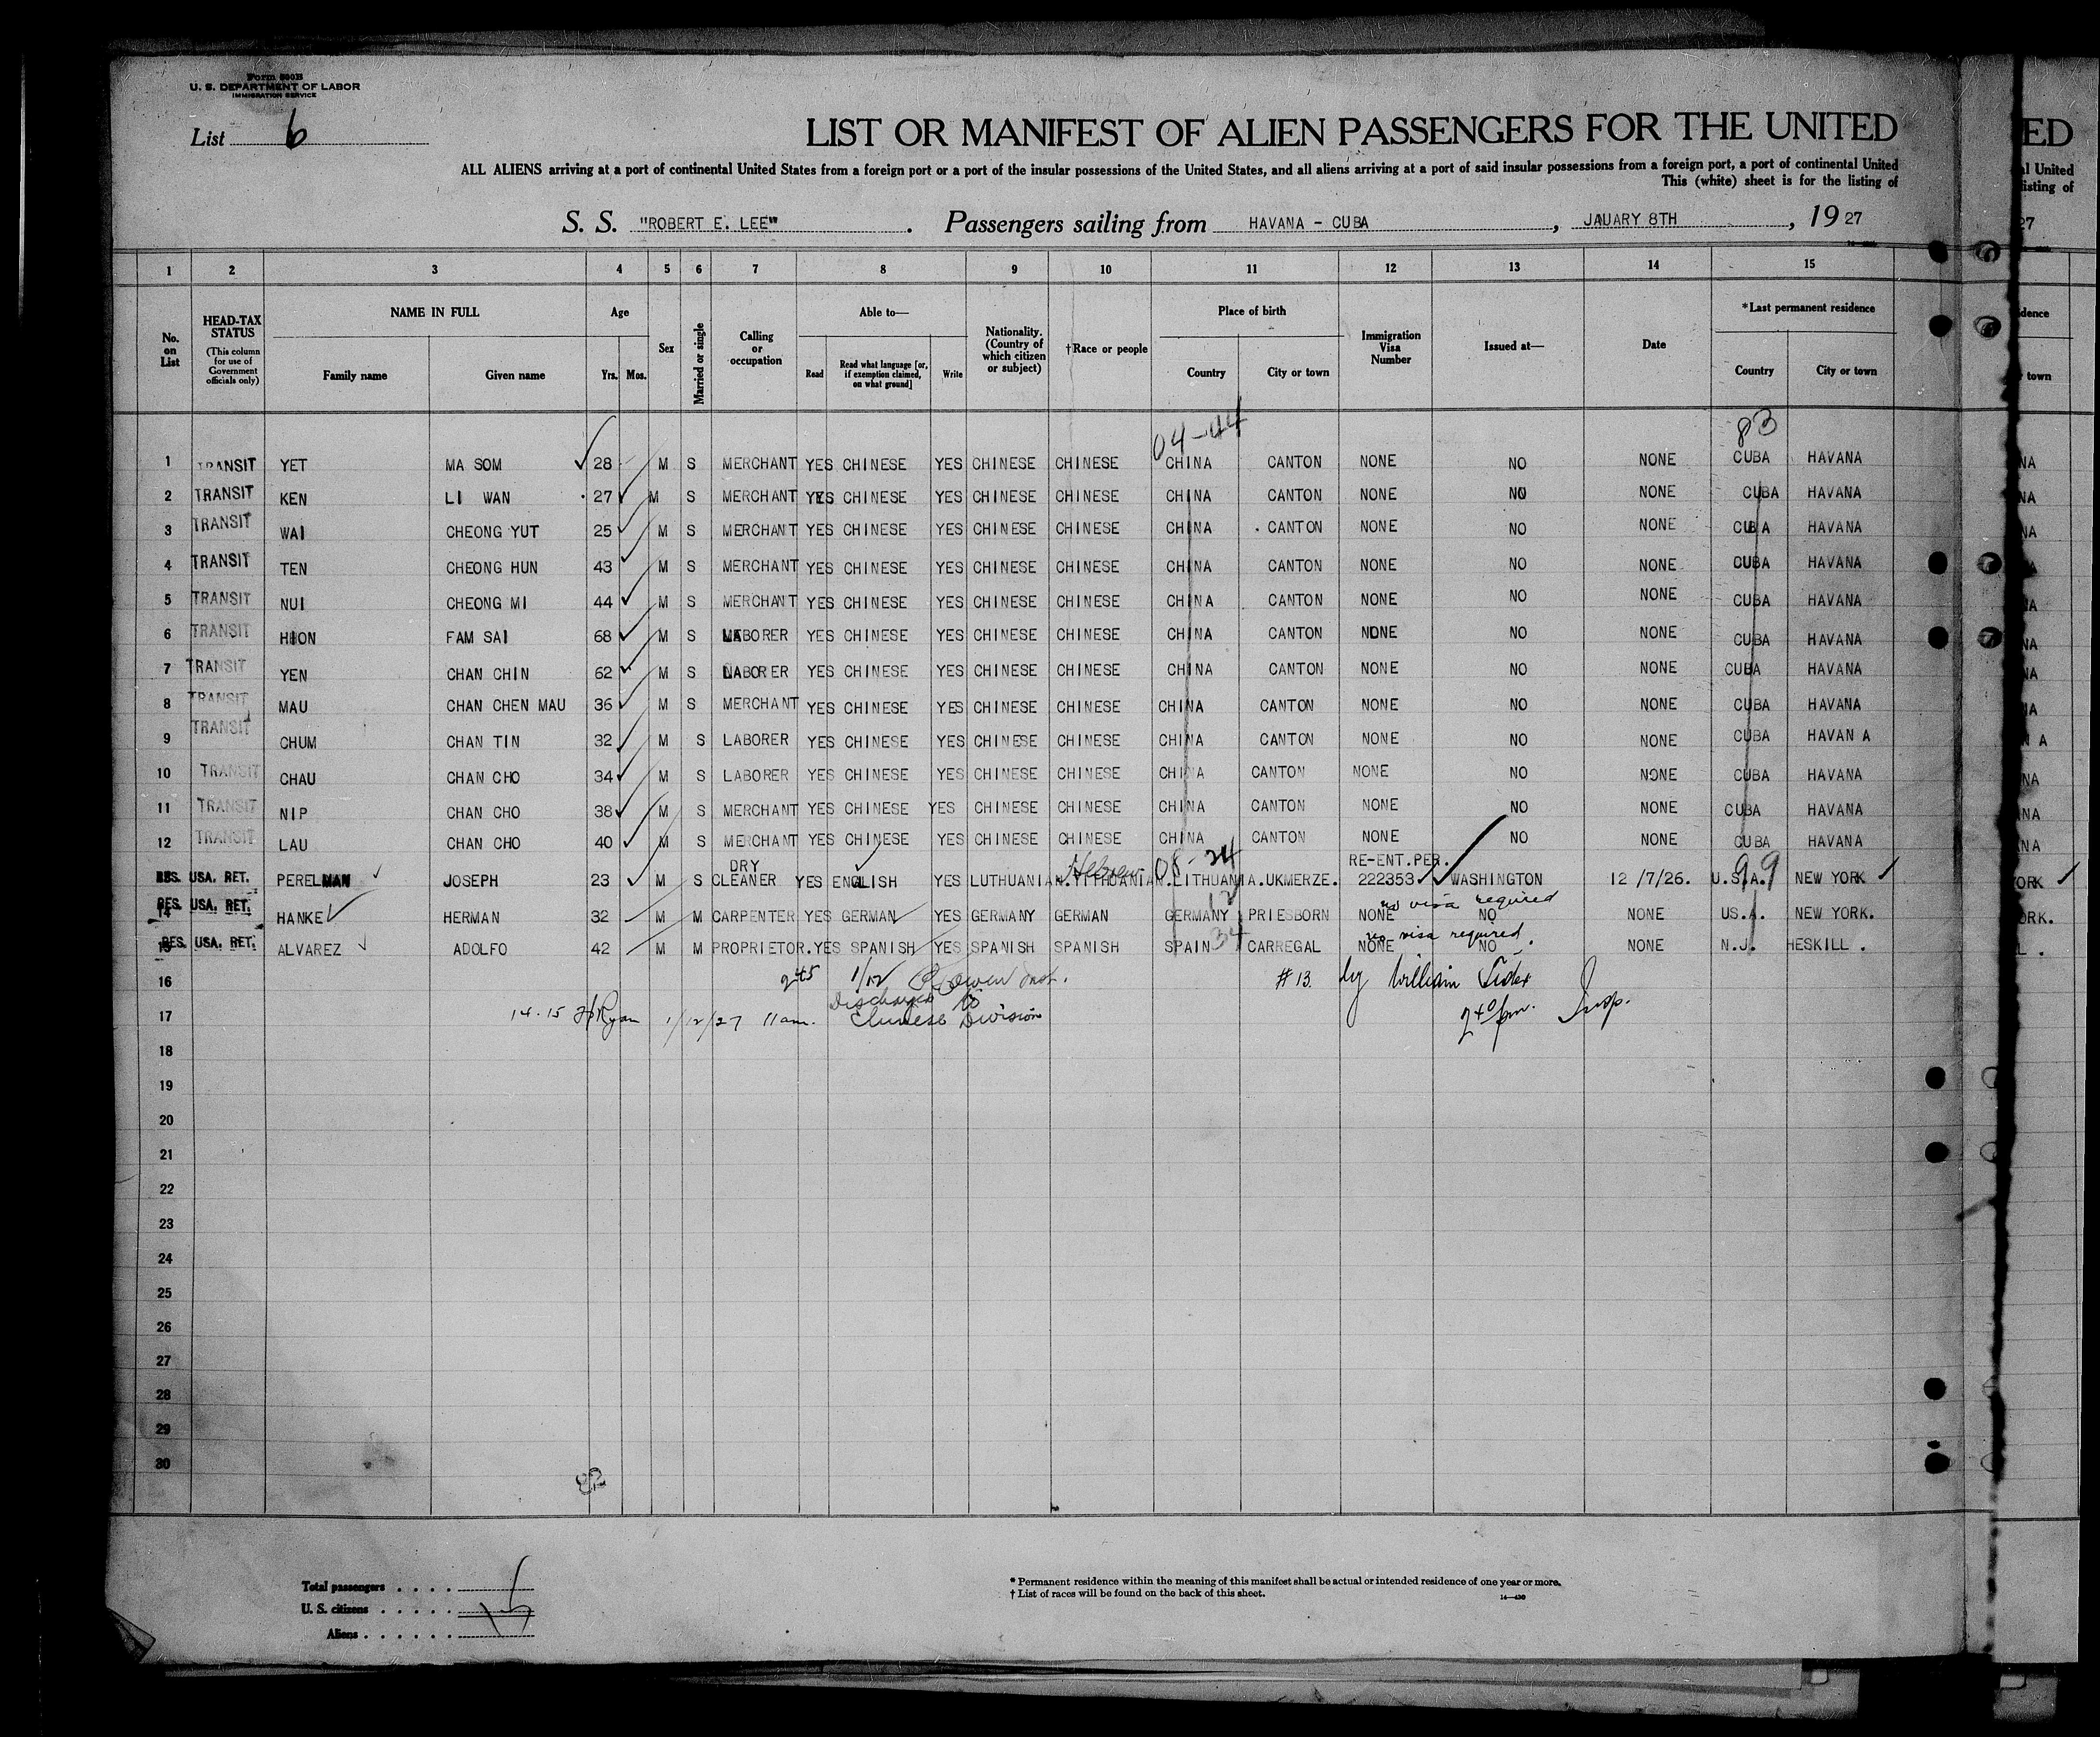 Form 500B
U. S. DEPARTMENT OF LABOR
IMMIGRATION SERVICE
List 6
LIST OR MANIFEST OF ALIEN PASSENGERS FOR THE UNITED
ALL ALIENS arriving at a port of continental United States from a foreign port or a port of the insular possessions of the United States, and all aliens arriving at a port of said insular possessions from a foreign port, a port of continental United
This (white) sheet is for the listing of
S. S. "ROBERT E. LEE" . Passengers sailing from HAVANA - CUBA , JAUARY 8TH , 19 27
1 2 3 4 5 6 7 8 9 10 11 12 13 14 15
No. on List
HEAD-TAX STATUS (This column for use of Government officials only)
NAME IN FULL Family name Given name
Age Yrs. Mos.
Sex
Married or single
Calling or occupation
Able to— Read Read what language [or, if exemption claimed, on what ground] Write
Nationality. (Country of which citizen or subject)
†Race or people
Place of birth Country City or town
Immigration Visa Number
Issued at—
Date
*Last permanent residence Country City or town
04-44 83
1 TRANSIT YET MA SOM 28 M S MERCHANT YES CHINESE YES CHINESE CHINESE CHINA CANTON NONE NO NONE CUBA HAVANA
2 TRANSIT KEN LI WAN 27 M S MERCHANT YES CHINESE YES CHINESE CHINESE CHINA CANTON NONE NO NONE CUBA HAVANA
3 TRANSIT WAI CHEONG YUT 25 M S MERCHANT YES CHINESE YES CHINESE CHINESE CHINA CANTON NONE NO NONE CUBA HAVANA
4 TRANSIT TEN CHEONG HUN 43 M S MERCHANT YES CHINESE YES CHINESE CHINESE CHINA CANTON NONE NO NONE CUBA HAVANA
5 TRANSIT NUI CHEONG MI 44 M S MERCHANT YES CHINESE YES CHINESE CHINESE CHINA CANTON NONE NO NONE CUBA HAVANA
6 TRANSIT HION FAM SAI 68 M S LABORER YES CHINESE YES CHINESE CHINESE CHINA CANTON NONE NO NONE CUBA HAVANA
7 TRANSIT YEN CHAN CHIN 62 M S LABORER YES CHINESE YES CHINESE CHINESE CHINA CANTON NONE NO NONE CUBA HAVANA
8 TRANSIT MAU CHAN CHEN MAU 36 M S MERCHANT YES CHINESE YES CHINESE CHINESE CHINA CANTON NONE NO NONE CUBA HAVANA
9 TRANSIT CHUM CHAN TIN 32 M S LABORER YES CHINESE YES CHINESE CHINESE CHINA CANTON NONE NO NONE CUBA HAVAN A
10 TRANSIT CHAU CHAN CHO 34 M S LABORER YES CHINESE YES CHINESE CHINESE CHINA CANTON NONE NO NONE CUBA HAVANA
11 TRANSIT NIP CHAN CHO 38 M S MERCHANT YES CHINESE YES CHINESE CHINESE CHINA CANTON NONE NO NONE CUBA HAVANA
12 TRANSIT LAU CHAN CHO 40 M S MERCHANT YES CHINESE YES CHINESE CHINESE CHINA CANTON NONE NO NONE CUBA HAVANA
DRY Hebrew 08-24 RE-ENT.PER. 99
RES. USA. RET. PERELMAN JOSEPH 23 M S CLEANER YES ENGLISH YES LUTHUANIAN. LITHUANIA. UKMERZE. 222353 WASHINGTON 12 /7/26. U.S.A. NEW YORK
12 no visa required
14 RES. USA. RET. HANKE HERMAN 32 M M CARPENTER YES GERMAN YES GERMANY GERMAN GERMANY PRIESBORN NONE NO NONE US.A. NEW YORK.
34 no visa required.
15 RES. USA. RET. ALVAREZ ADOLFO 42 M M PROPRIETOR. YES SPANISH YES SPANISH SPANISH SPAIN CARREGAL NONE NO . NONE N.J. HESKILL .
16 245 1/12 # 13. by William
Discharged to
17 14-15 Ryan 1/12/27 11am. Chinese Division 240 pm. Insp.
18
19
20
21
22
23
24
25
26
27
28
29
30
Total passengers . . . .
U. S. citizens . . . . . 15
Aliens . . . . . .
* Permanent residence within the meaning of this manifest shall be actual or intended residence of one year or more.
† List of races will be found on the back of this sheet.
14—430